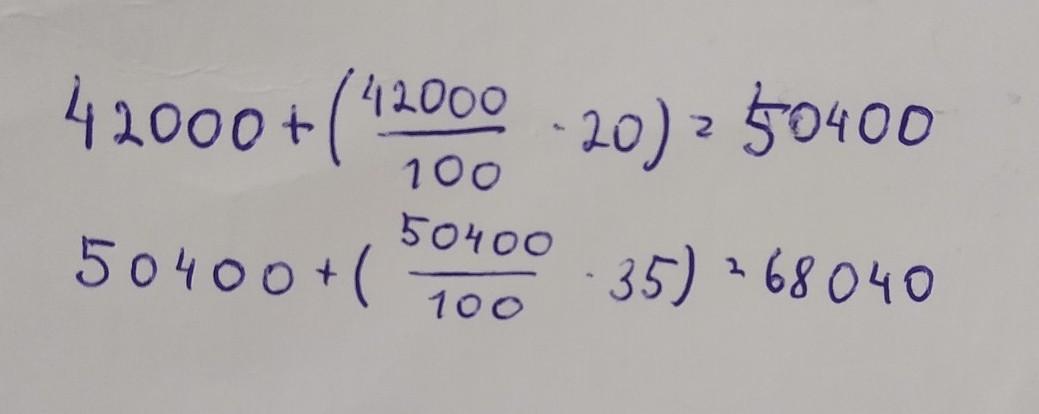 42000 + (42000/100 · 20) = 50400
50400 + (50400/100 · 35) = 68040